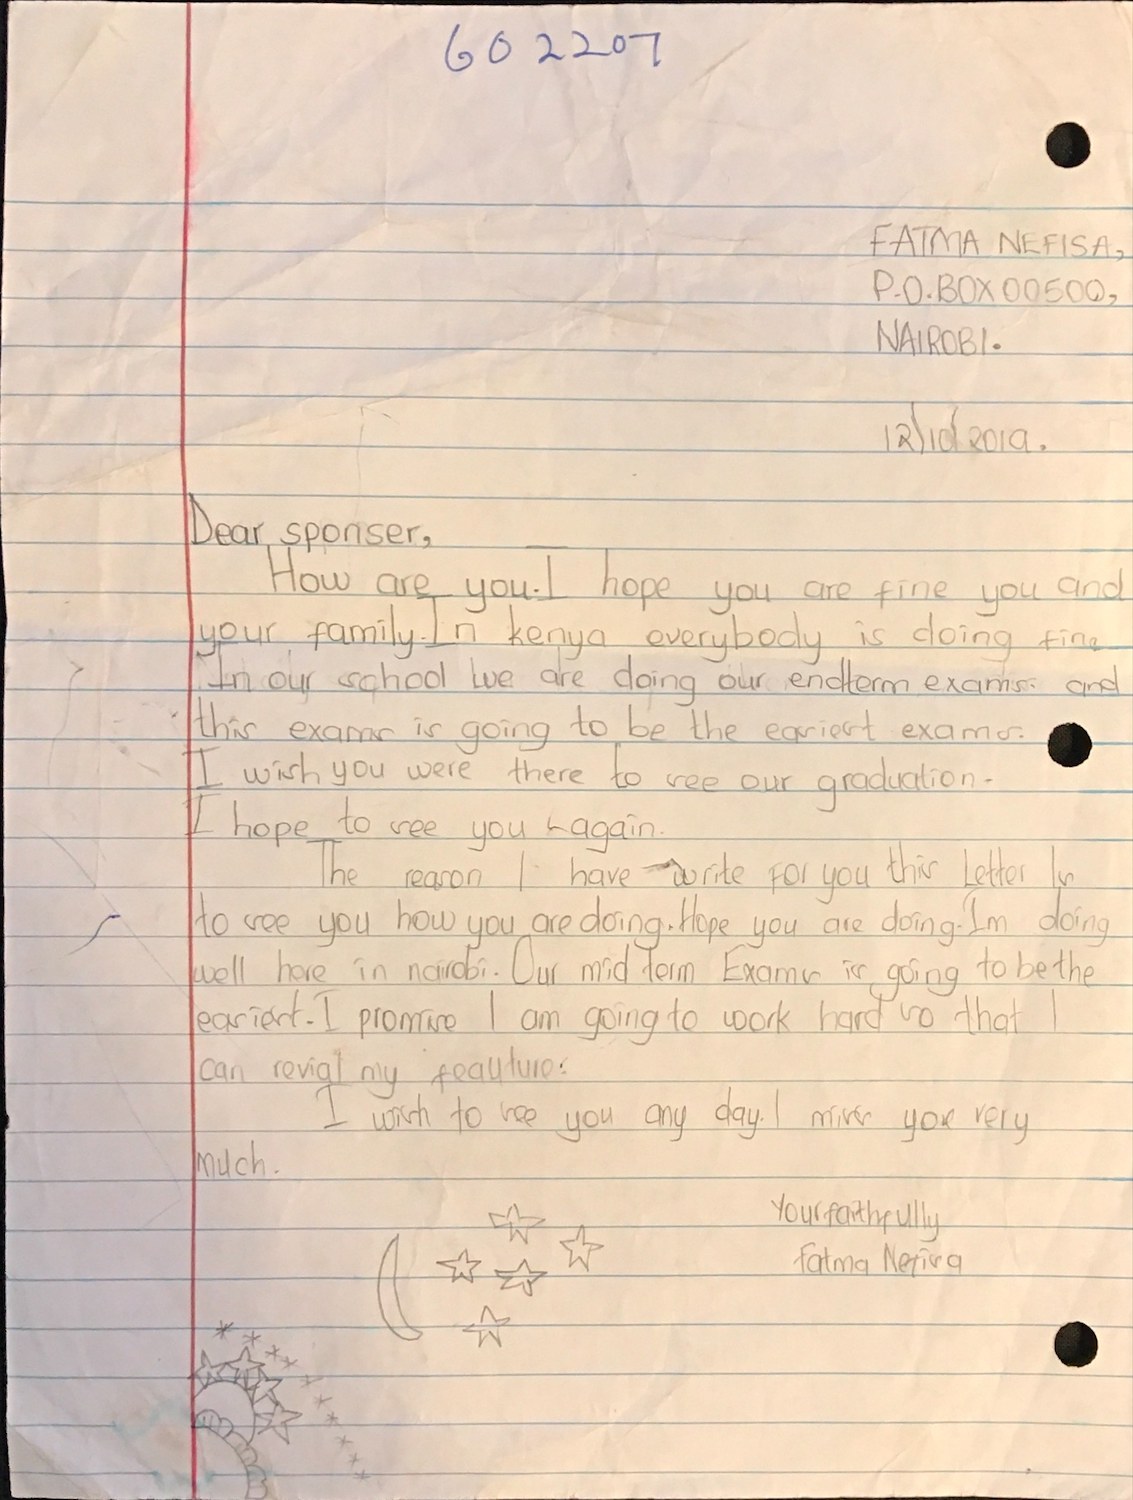 602207
FATMA NEFISA,
P.O.BOX 00500,
NAIROBI.
12/10/2019.
Dear sponser,
How are you.I hope you are fine you and
your family.In kenya everybody is doing fine
In our school we are doing our endterm exams. and
this exams is going to be the easiest exams.
I wish you were there to see our graduation.
I hope to see you again.
The reason I have write for you this Letter Is
to see you how you are doing.Hope you are doing.Im doing
well here in nairobi. Our mid Term Exams is going to be the
easiest.I promise I am going to work hard so that I
can revial my feauture.
I wish to see you any day.I miss you very
much.
Your faithfully
Fatma Nefisa